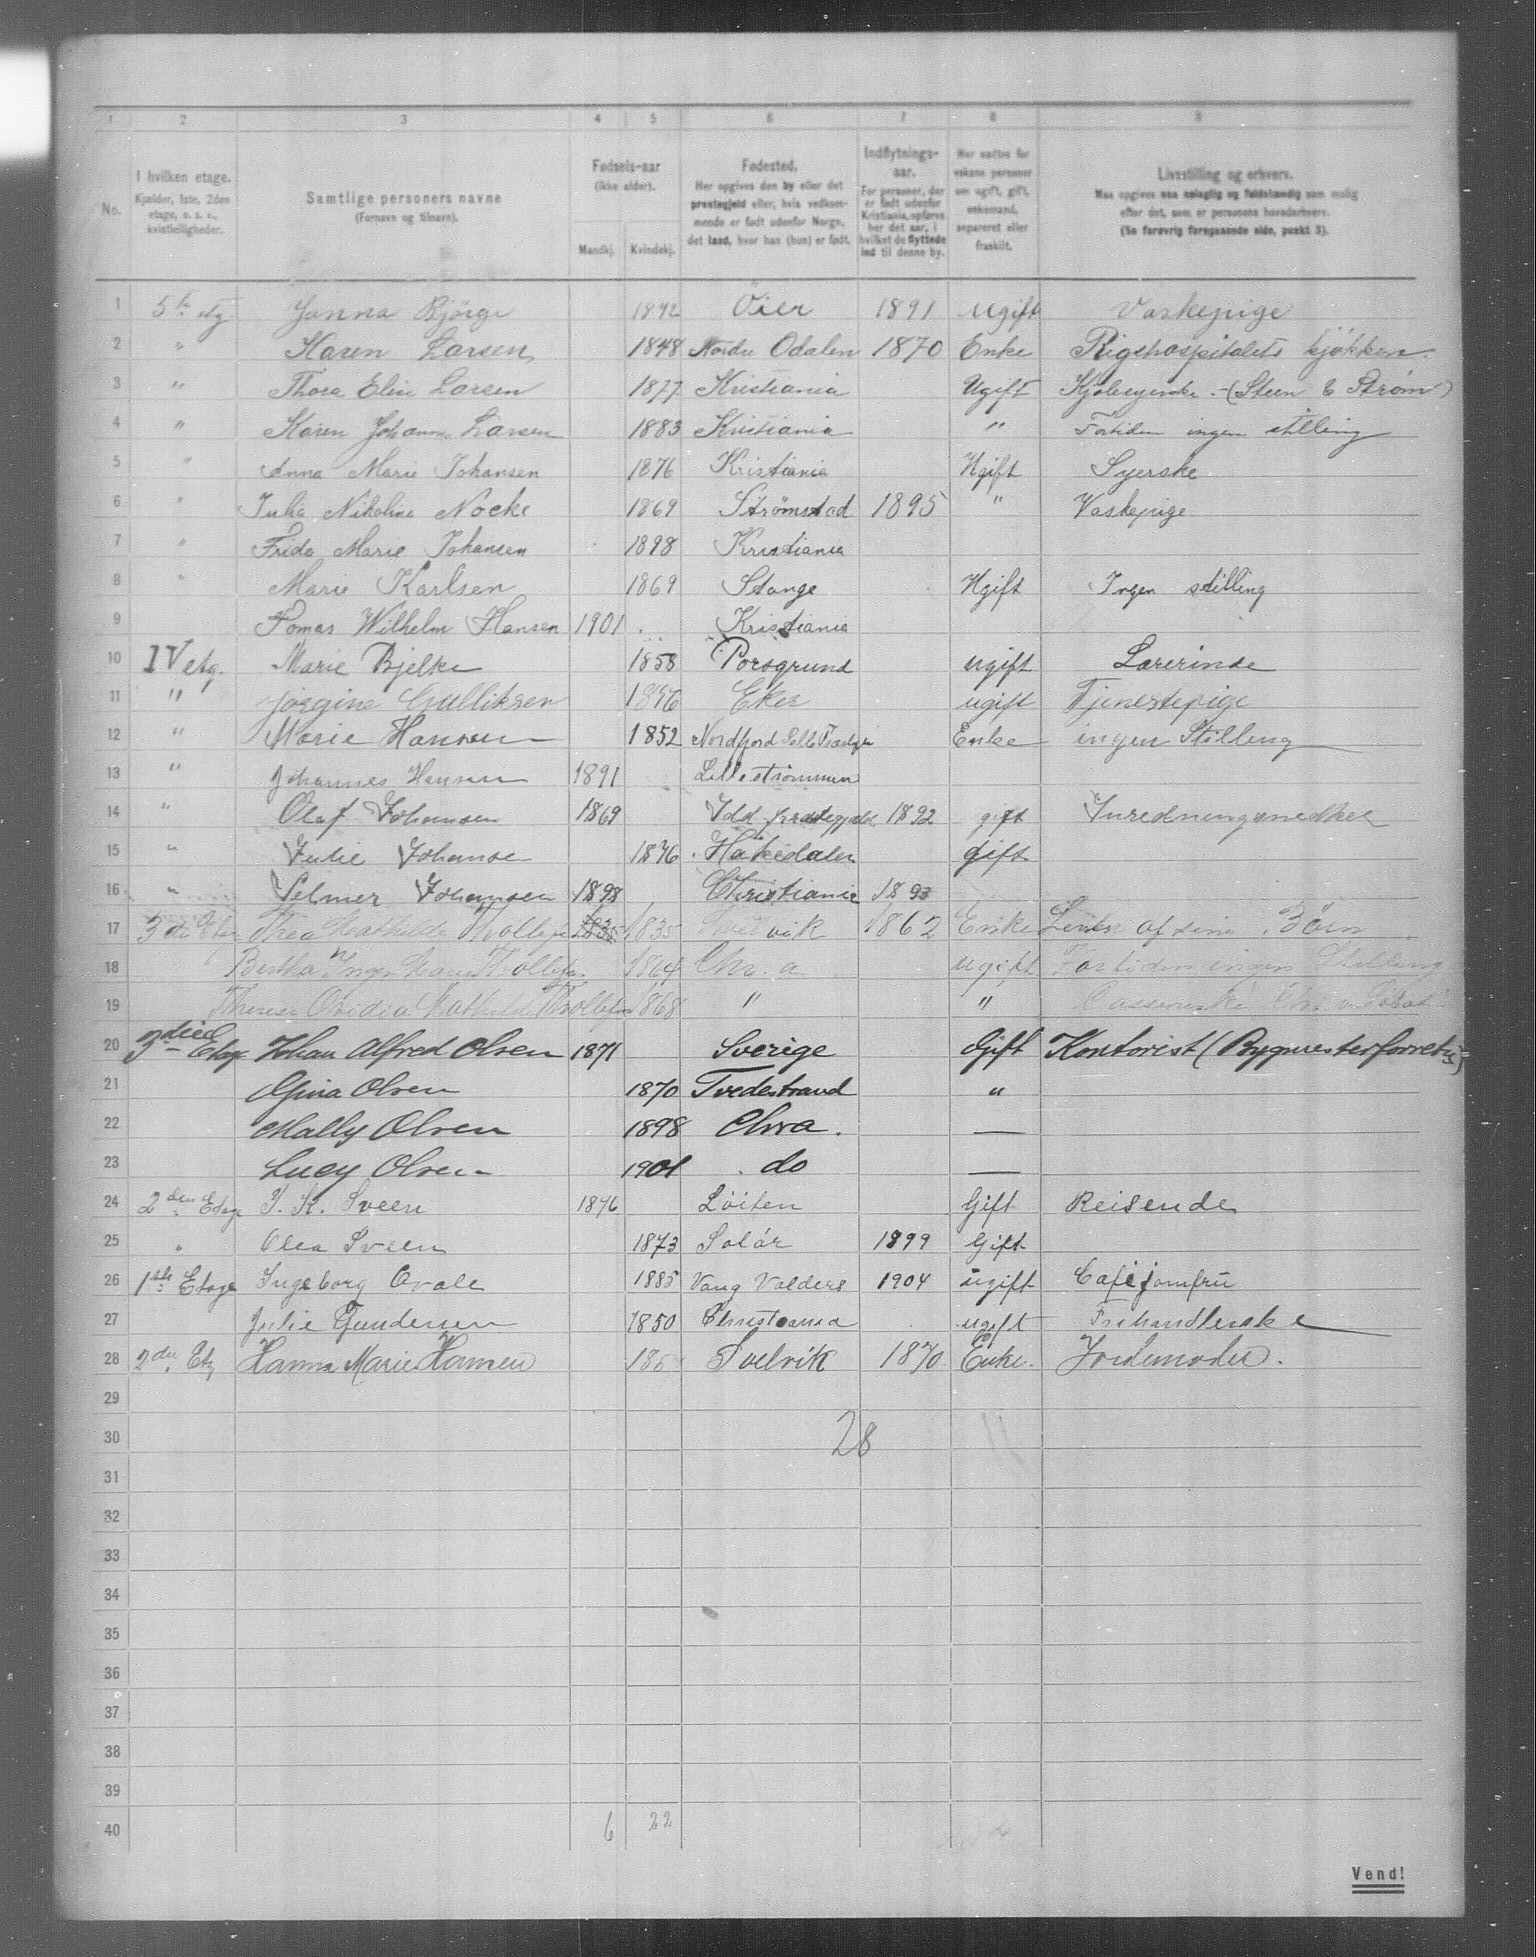 1 2 3 4 5 6 7 8 9
No. I hvilken etage. Kjælder, 1ste, 2den etage, o. s. v., kvistleiligheder. Samtlige personers navne (Fornavn og tilnavn). Fødsels-aar (ikke alder). Mandkj. Kvindekj. Fødested. Her opgives den by eller det præstegjeld eller, hvis vedkommende er født udenfor Norge, det land, hvor han (hun) er født. Indflytnings-aar. For personer, der er født udenfor Kristiania, opføres her det aar, i hvilket de flyttede ind til denne by. Her sættes for voksne personer om ugift, gift, enkemand, separeret eller fraskilt. Livsstilling og erhverv. Maa opgives saa nøiagtig og fuldstændig som mulig efter det, som er personens hovederhverv. (Se forøvrig foregaaende side, punkt 3).
1 5te etg Janna Bjørge 1892 Öier 1891 Ugift Vaskepige
2 " Karen Larsen 1848 Nordre Odalen 1870 Enke Rigshospitalets kjøkken.
3 " Thora Elin Larsen 1877 Kristiania Ugift (Steen & Strøm)
4 " Karen Johanne Larsen 1883 Kristiania " Fortiden ingen stilling
5 " Anna Marie Johansen 1876 Kristiania Ugift Syerske
6 " Julia Nikoline Nocke 1869 Strømstad 1895 " Vaskepige
7 " Frida Marie Johansen 1898 Kristiania
8 " Marie Karlsen 1869 Stange Ugift Ingen stilling
9 Tomas Wilhelm Hansen 1901 Kristiania
10 IV etg. Marie Bjelke 1858 Porsgrund ugift Lærerinde
11 " Jørgine Gulliksen 1896 Eker ugift Tjenestepige
12 " Marie Hansen 1852 Nordfjord Enke ingen Stilling
13 " Johannes Hansen 1891 Lillestrømmen
14 " Olaf Johansen 1869 Idd præstegjeld 1892 gift Inredningsnedker
15 " Julie Johanse 1876 Hakedalen gift
16 " Selmer Johansen 1898 Christiania 1893
17 3die Etg Thea Mathilde 1835 1835 Svelvik 1862 Enke Lever af sine Børn
18 Bertha Inga 1864 Chr.a ugift Fortiden ingen Stilling
19 Therese Ovidia Mathilde 1868 " "
20 3die Etage Johan Alfred Olsen 1871 Sverige Gift Kontorist (Bygmesterforretng)
21 Gina Olsen 1870 Tvedestrand "
22 Mally Olsen 1898 Chra. —
23 Lucy Olsen 1901 do —
24 2den Etage I. K. Sveen 1876 Löiten Gift Reisende
25 " Olea Sveen 1873 Solör 1899 Gift
26 1ste Etage Ingeborg Ovale 1885 Vang Valders 1904 ugift Cafejomfru
27 Julie Gundersen 1850 Christiania ugift Frihandlerske
28 2den Etg Hanna Marie Hansen Svelvik 1870 Enke. Jordemoder.
29
30 28
31
32
33
34
35
36
37
38
39
40 6 22
Vend!